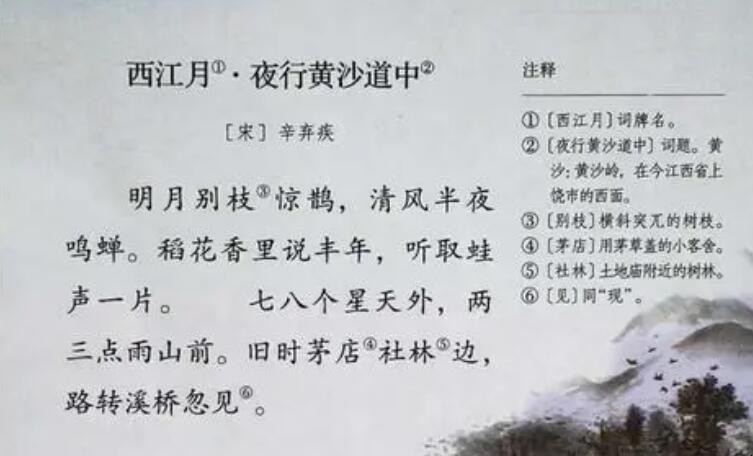 西江月①·夜行黄沙道中②
[宋] 辛弃疾
明月别枝③惊鹊，清风半夜
鸣蝉。稻花香里说丰年，听取蛙
声一片。 七八个星天外，两
三点雨山前。旧时茅店④社林⑤边，
路转溪桥忽见⑥。
注释
①〔西江月〕词牌名。
②〔夜行黄沙道中〕词题。黄
沙：黄沙岭，在今江西省上
饶市的西面。
③〔别枝〕横斜突兀的树枝。
④〔茅店〕用茅草盖的小客舍。
⑤〔社林〕土地庙附近的树林。
⑥〔见〕同“现”。